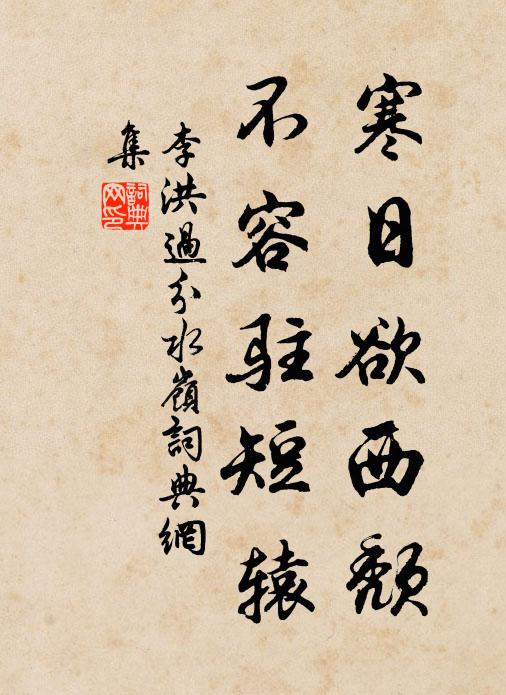 寒日欲西颓
不容驻短辕
李洪過分水嶺詞典網
集
詞典
网印